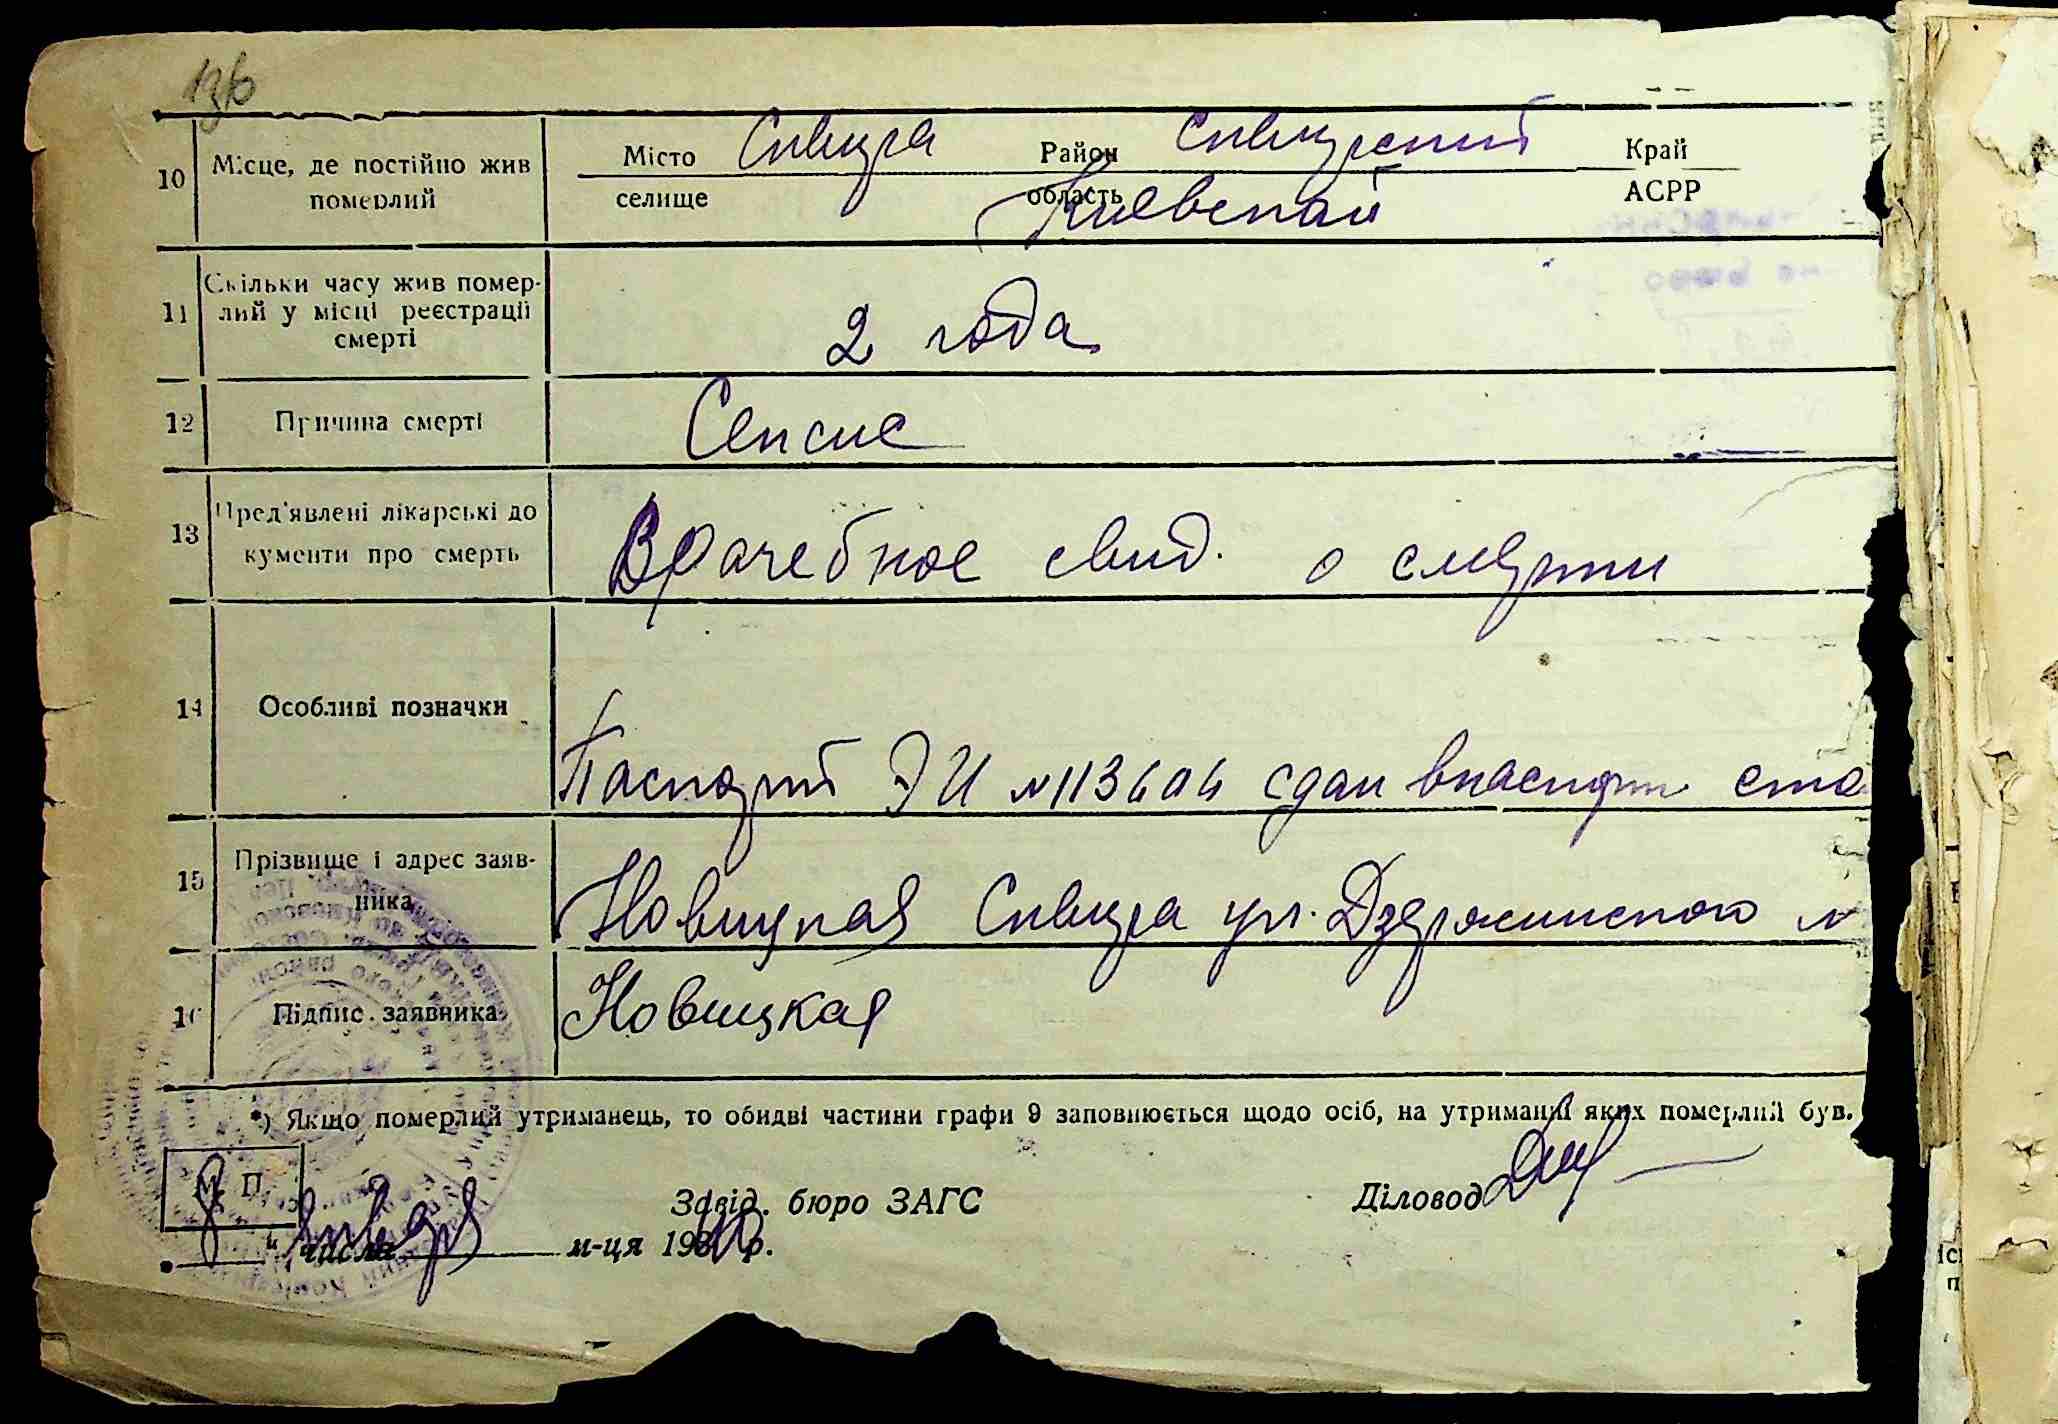 10 Місце, де постійно жив
померлий
Місто Сквира Район Сквирский Край
селище область Киевской АСРР
11 Скільки часу жив помер-
лий у місці реєстрації
смерті
2 года
12 Причина смерті
Сепсис
13 Пред'явлені лікарські до
кументи про смерть
Врачебное свид. о смерти
14 Особливі позначки
Паспорт ЭИ № сдан в паспортн. сто
15 Прізвище і адрес заяв-
ника
Новицкая Сквира ул. Дзержинского №
16 Підпис заявника
Новицкая
*) Якщо померлий утриманець, то обидві частини графи 9 заповнюється щодо осіб, на утриманні яких померлий був.
М П
Завід. бюро ЗАГС Діловод
8 " числа января м-ця 1940 р.